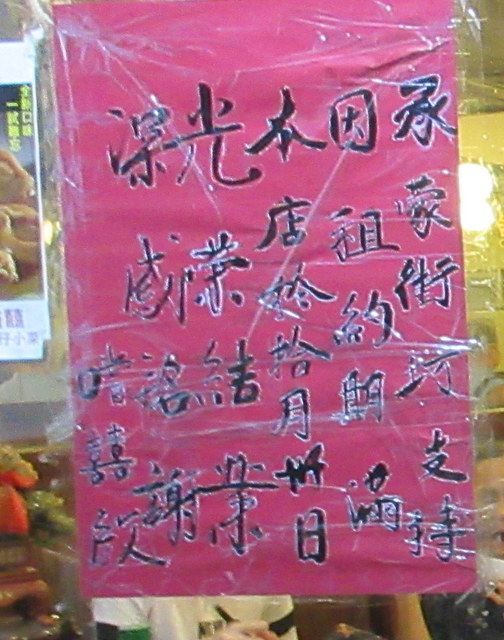 承蒙街坊支持
因租約期滿
本店於拾月卅日
光榮結業
深感銘謝
嚐囍
全新口味
一試難忘
囍
仔小菜